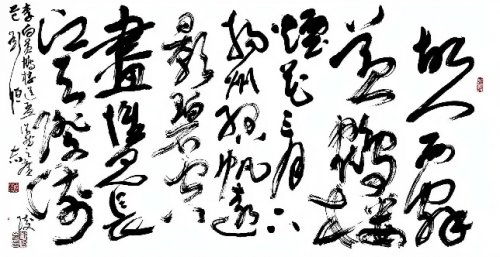 故人西辞
黄鶴楼
煙花三月下
揚州孤帆遠
影碧空
盡惟見長
江天際流
李白黄鶴樓送孟浩然之廣